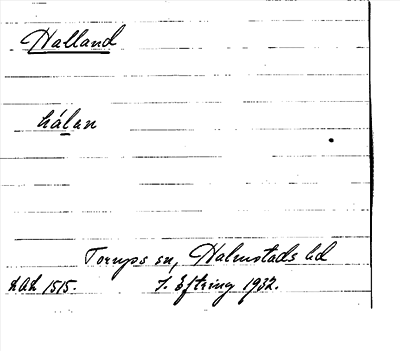 Halland
hálan
Tornps sn, Halmstads hd
LAL 1515. F. Eftring 1932.